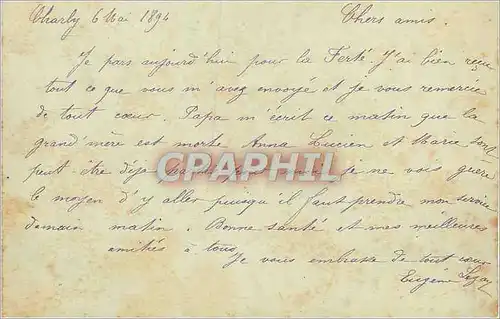 Charly 6 Mai 1894 Chers amis.
Je pars aujourd'hui pour la Ferté. J'ai bien reçu
tout ce que vous m'avez envoyé et je vous remercie
de tout cœur. Papa m'écrit ce matin que la
grand'mère est morte Anna Lucien et Marie sont
peut être déjà je ne vois guère
CPARPHIL
le moyen d'y aller puisqu'il faut prendre mon service
demain matin. Bonne santé et mes meilleures
amitiés à tous
Je vous embrasse de tout cœur
Eugène